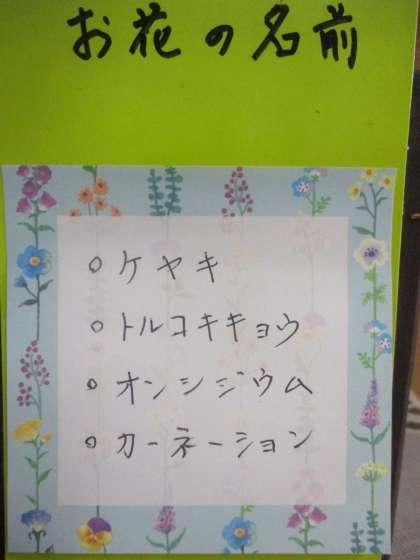 お花の名前
○ケヤキ
○トルコキキョウ
○オンシジウム
○カーネーション